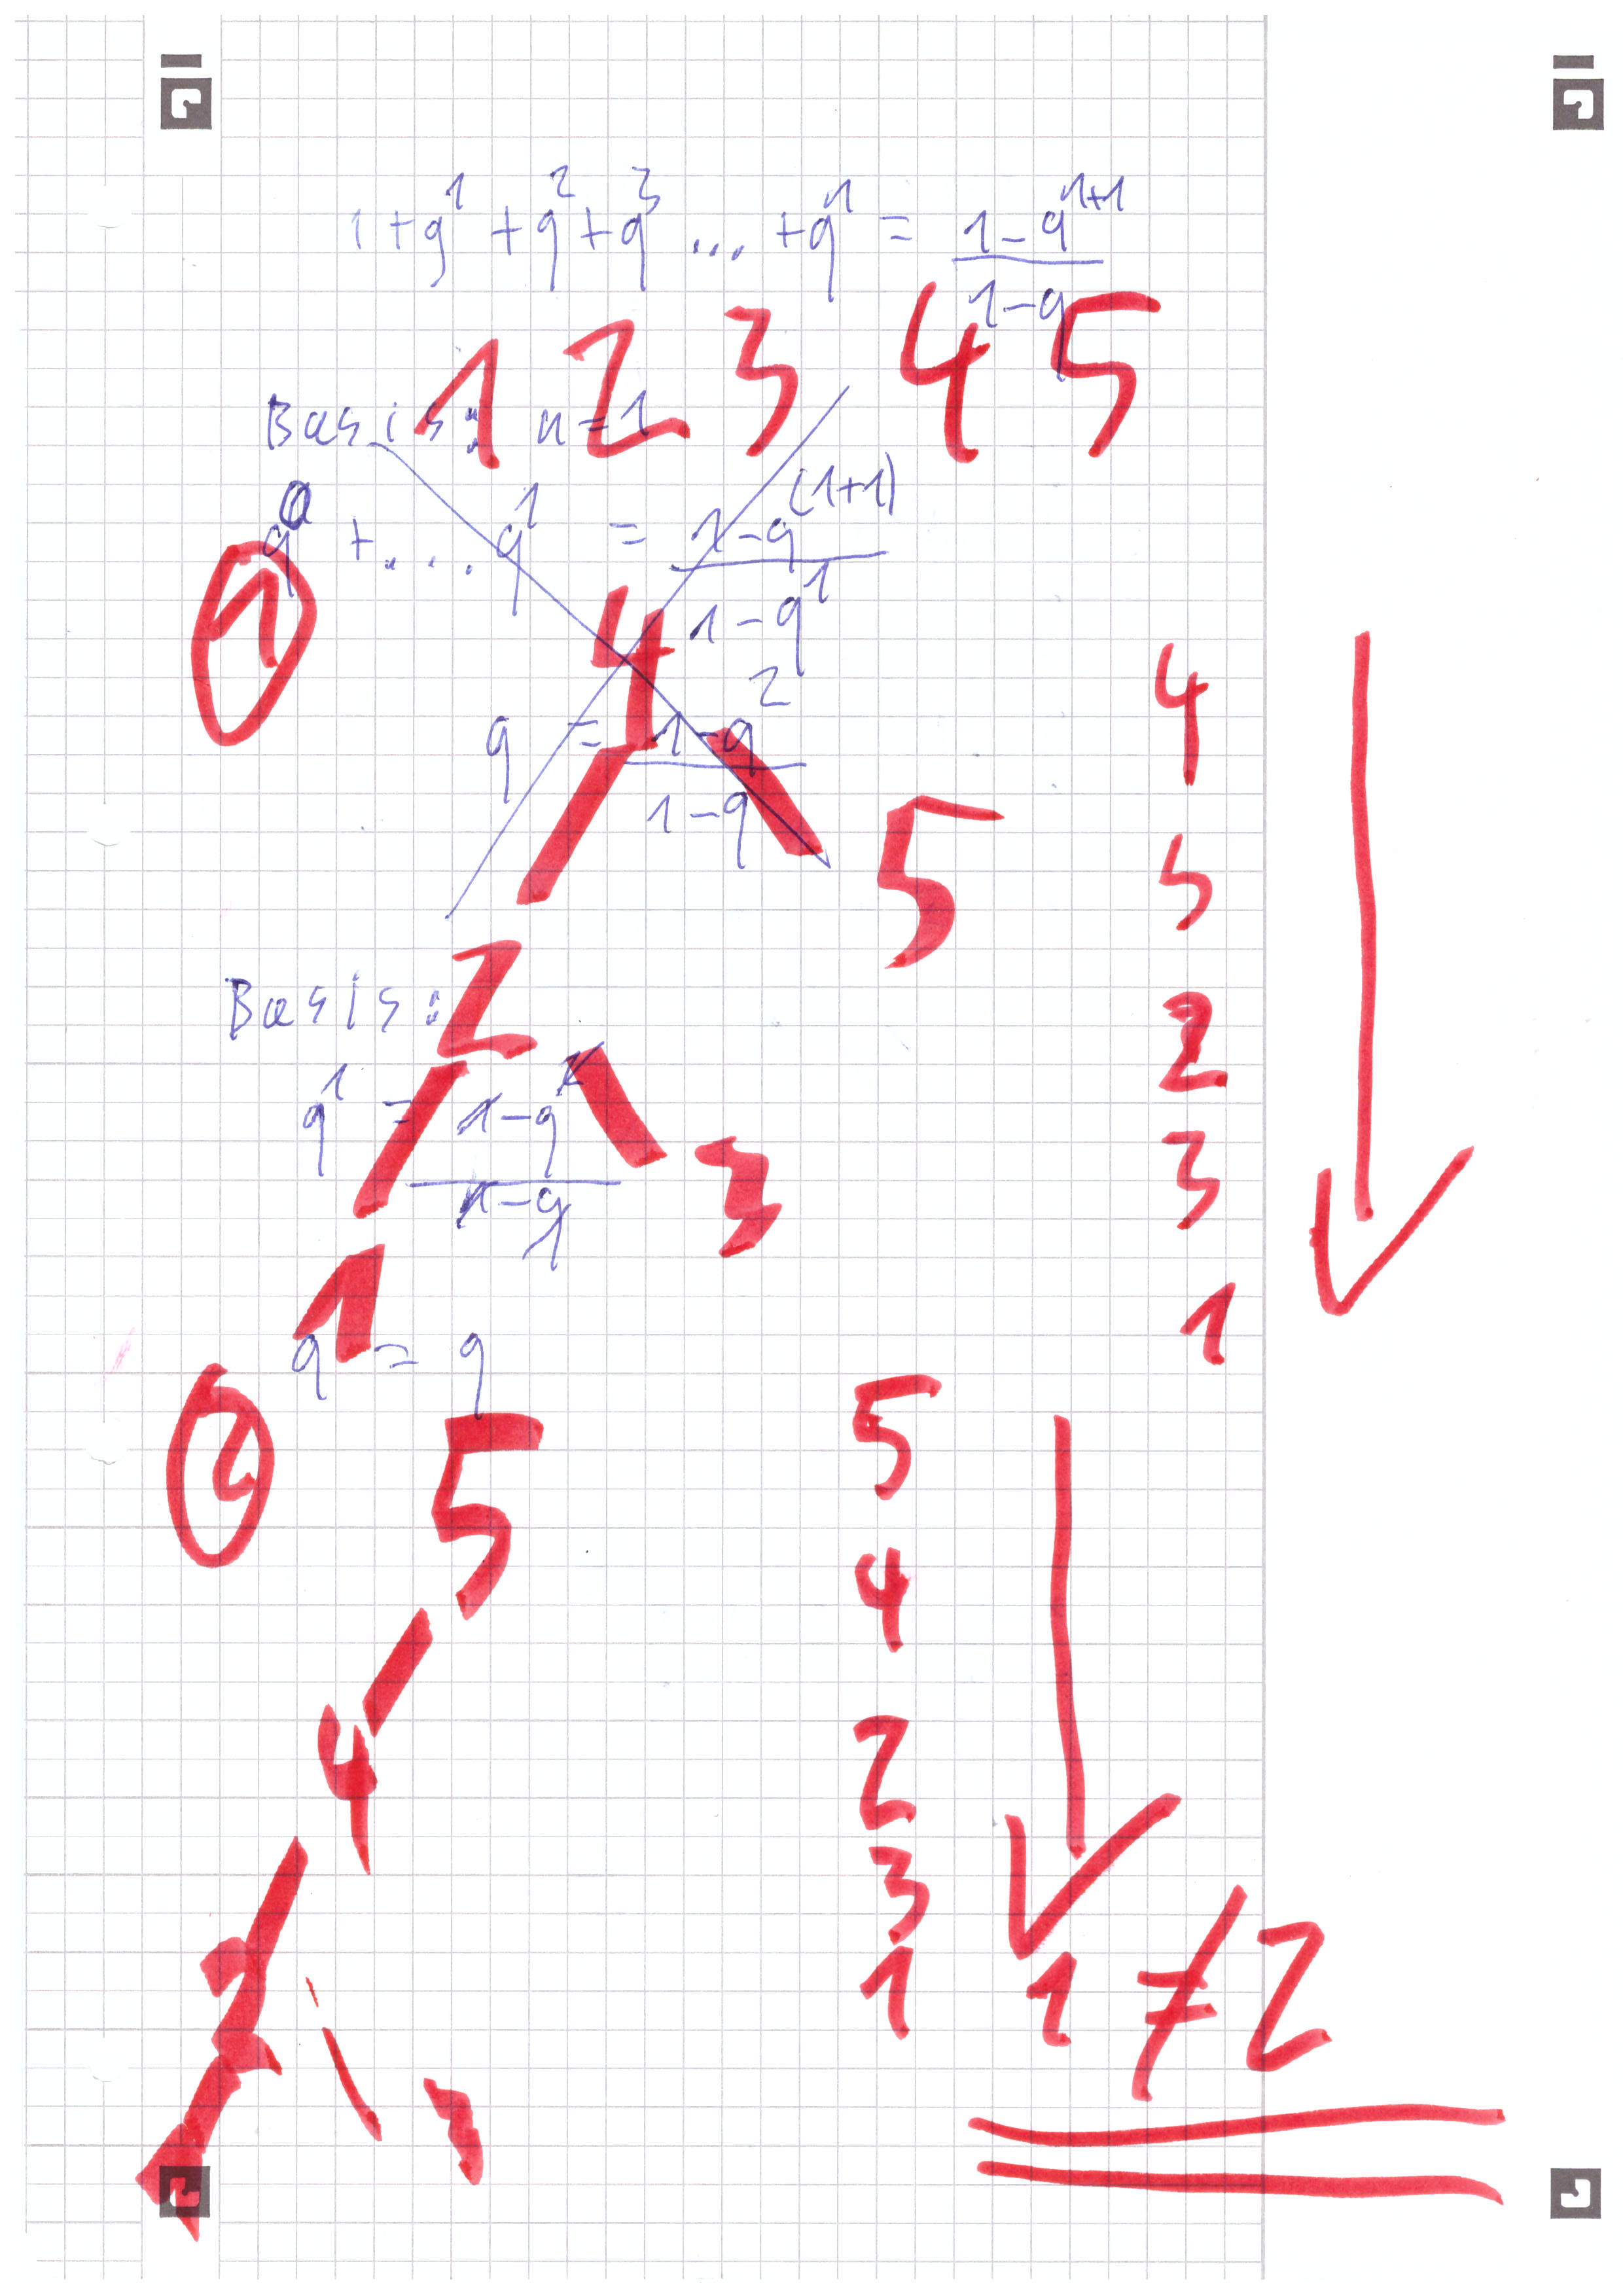 1 + q¹ + q² + q³ ... + qⁿ = (1 - qⁿ⁺¹) / (1 - q)
1 2 3 4 5
Basis: n = 1
q⁰ + .... q¹ = (1 - q⁽¹⁺¹⁾) / (1 - q¹)
①
4
q = (1 - q²) / (1 - q)
5
Basis:
2
q¹ = (1 - q²) / (1 - q)
1
3
1
q = q
②
5
4
2
1
3
4
5
2
3
1
5
4
2
3
1
1 ≠ 2